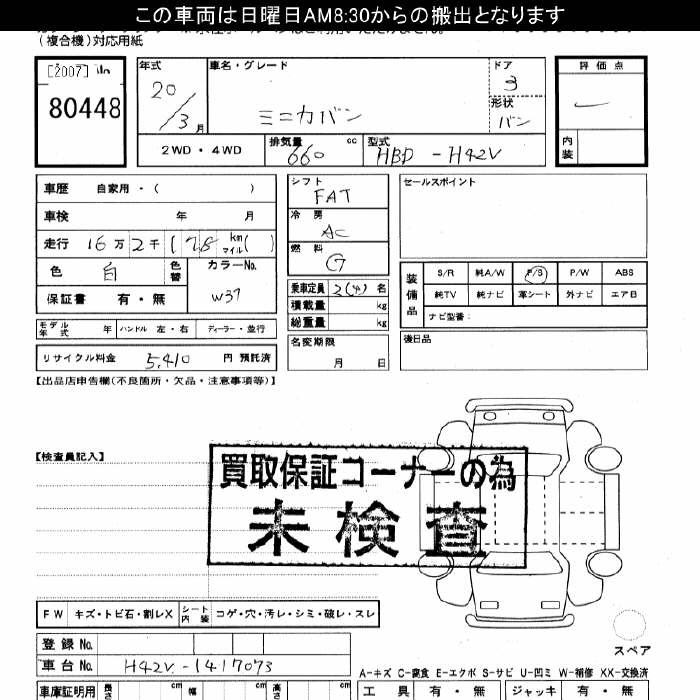 この車両は日曜日AM8:30からの搬出となります
(複合機)対応用紙
[2007]
80448
年式
20/3月
車名・グレード
ミニカバン
ドア
3
形状
バン
評価点
内装
2WD・4WD
排気量
660 cc
型式
HBD-H42V
車歴 自家用・( )
車検 年 月
走行 16万2千(78 km マイル( )
色 白 色替
カラーNo.
W37
保証書 有・無
シフト
FAT
冷房
AC
燃料
G
乗車定員 2(4)名
積載量 kg
総重量 kg
名変期限
月 日
セールスポイント
装備品
S/R 純A/W P/S P/W ABS
純TV 純ナビ 革シート 外ナビ エアB
ナビ型番:
後日品
モデル年式 年 ハンドル 左・右 ディーラー・並行
リサイクル料金 5,410 円 預託済
【出品店申告欄(不良箇所・欠品・注意事項等)】
【検査員記入】
買取保証コーナーの為
未検査
FW キズ・トビ石・割レX シート内装 コゲ・穴・汚レ・シミ・破レ・スレ
スペア
登録No.
車台No. H42V-1417073
A-キズ C-腐食 E-エクボ S-サビ U-凹ミ W-補修 XX-交換済
車庫証明用 長さ cm 幅 cm 高さ cm
工具 有・無 ジャッキ 有・無